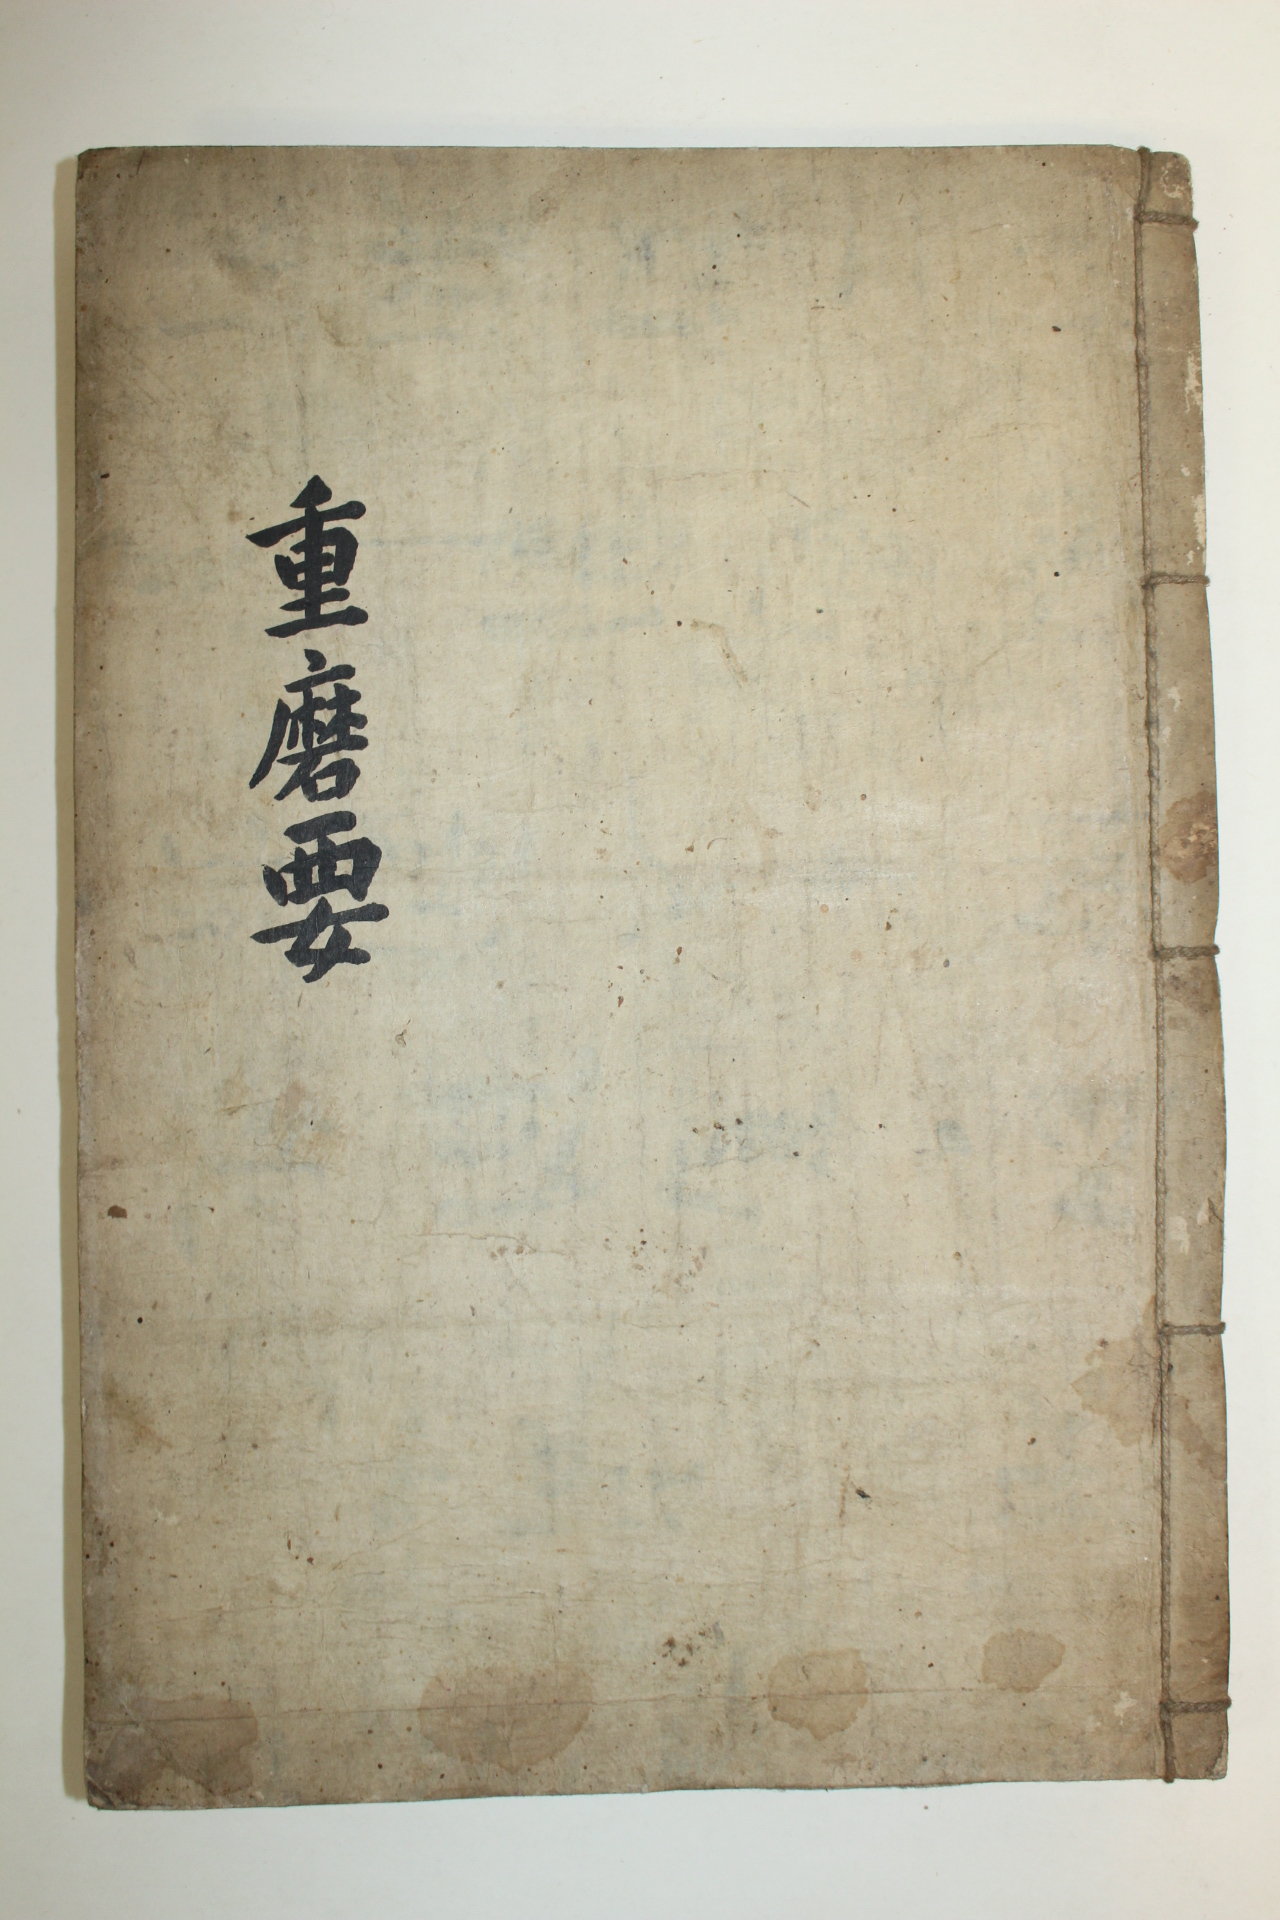 重磨要